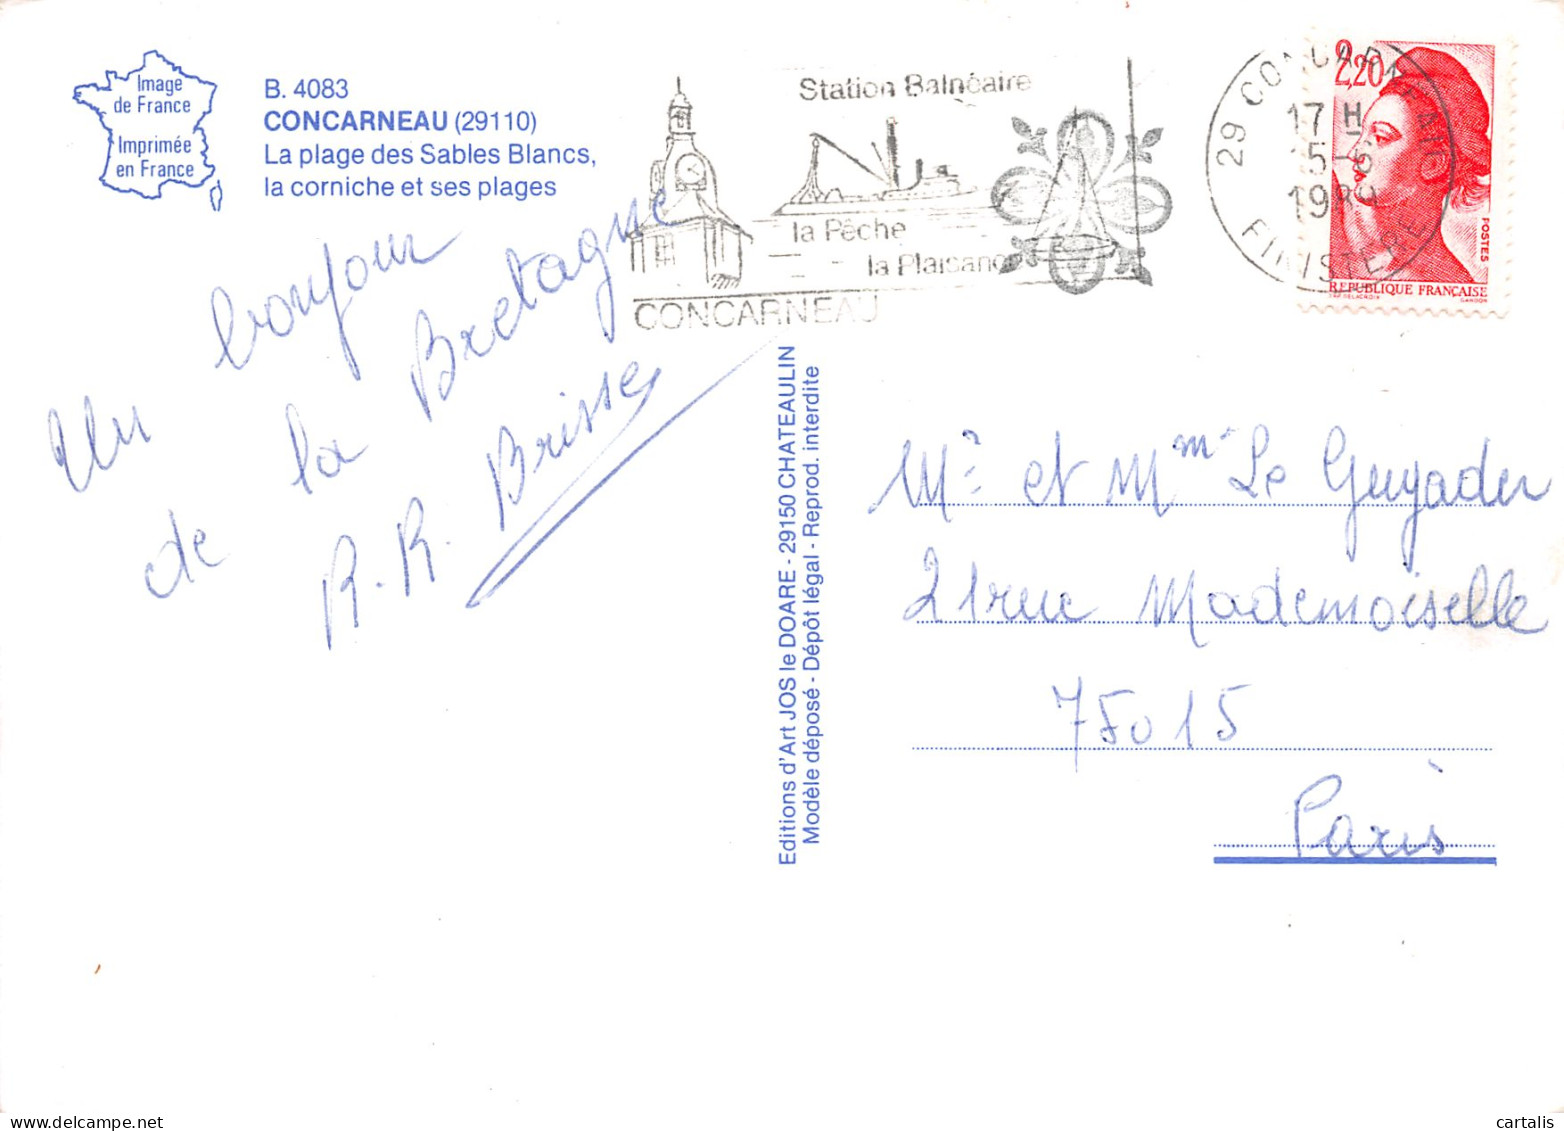 Image
de France
Imprimée
en France
B. 4083
CONCARNEAU (29110)
La plage des Sables Blancs,
la corniche et ses plages
Station Balnéaire
la Pêche
la Plaisance
CONCARNEAU
29 CONCARNEAU
17 H
1989
FINISTERE
2,20
POSTES
REPUBLIQUE FRANÇAISE
D'AP. DELACROIX
GANDON
Un bonjour
de la Bretagne
R.R. Brisse
Editions d'Art JOS le DOARE - 29150 CHATEAULIN
Modèle déposé - Dépôt légal - Reprod. interdite
Mr et Mme Le Guyader
21 rue Mademoiselle
75015
Paris
cartalis